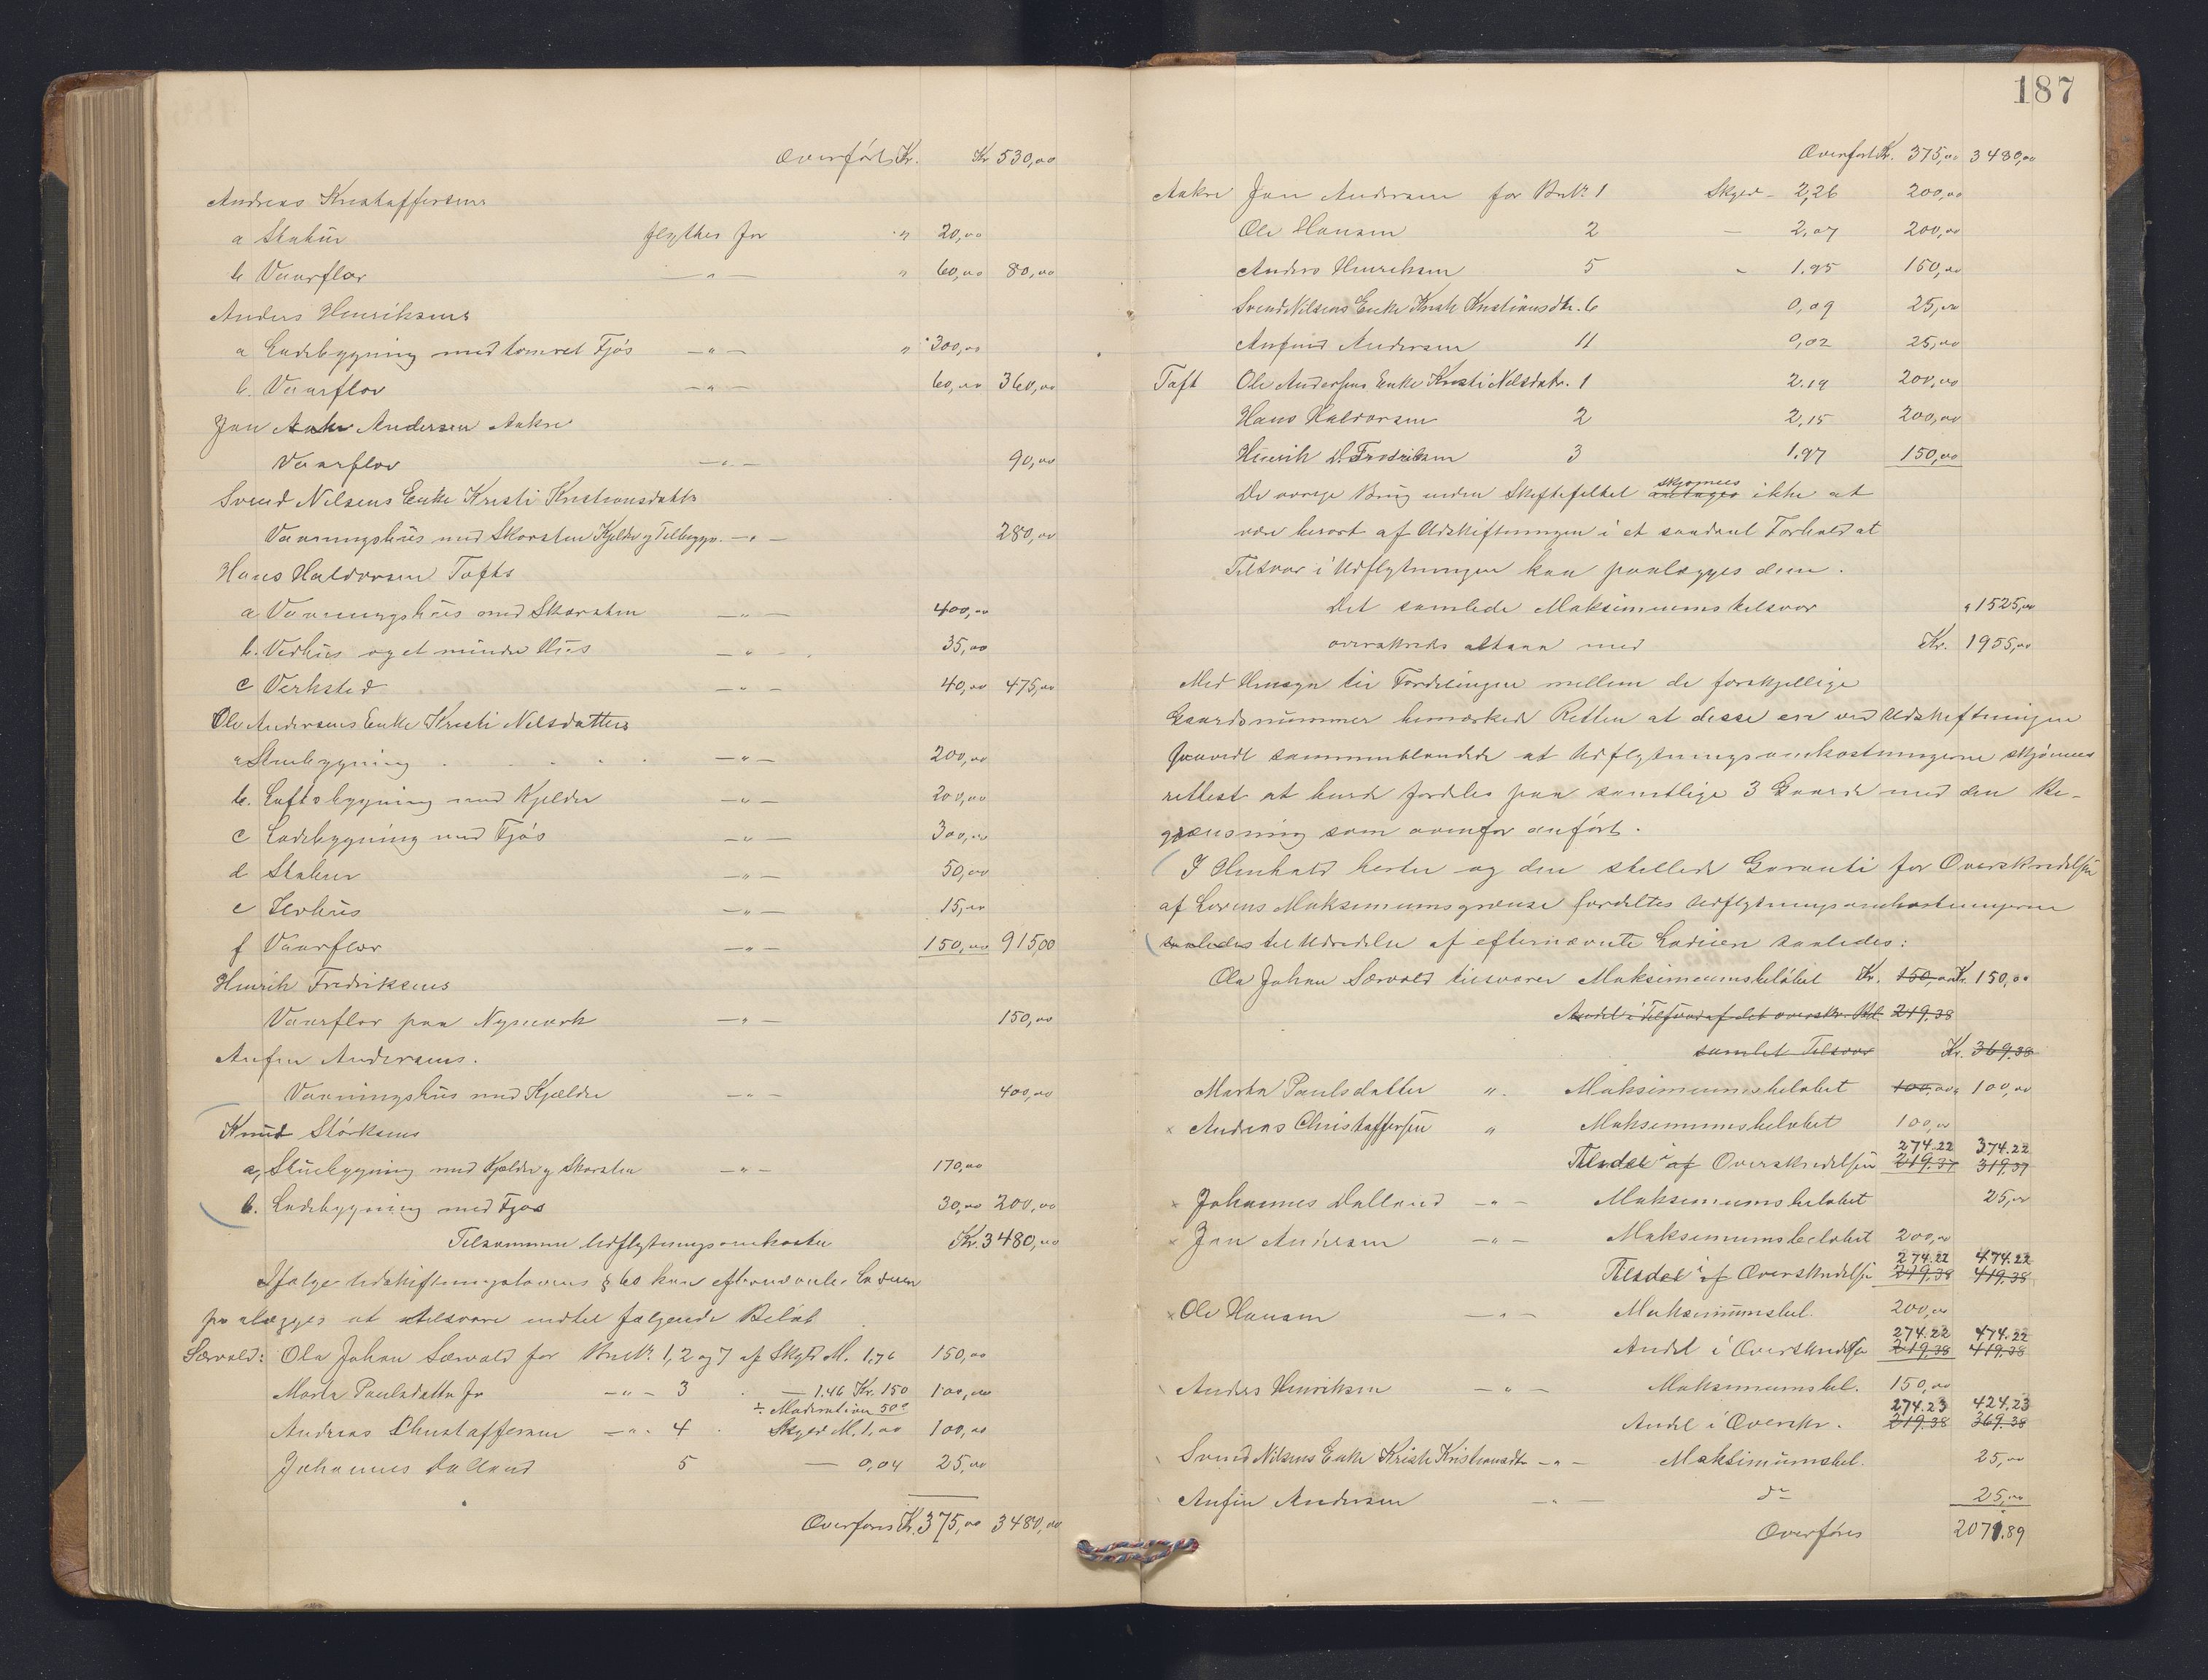 Overført Kr. Kr 530,00
Andreas Kristoffersens
a Stabur flyttes for " 20,00
b Vaarflor — " — " 60,00 80,00
Anders Henriksens
a Ladebygning med tømret Fjøs — " — " 300,00
b. Vaarflor — " — 60,00 360,00
Jon Andersen Aakre
Vaarflor — " — 90,00
Svend Nilsens Enke Kristi Kristiansdatter
Vaaningshus med Skorsten Kjelder og Tilbygn. — " — 280,00
Hans Haldorsen Tofts
a Vaaningshus med Skorsten — " — 400,00
b. Vedhus og et mindre Hus — " — 35,00
c Verksted — " — 40,00 475,00
Ole Andersens Enke Kristi Nilsdatters
a Stuebygning — " — 200,00
b. Loftsbygning med Kjelder — " — 200,00
c Ladebygning med Fjøs — " — 300,00
d Stabur — " — 50,00
e Ildhus — " — 15,00
f Vaarflor — " — 150,00 915,00
Henrik Fredriksens
Vaarflor paa Nymark — " — 150,00
Anfin Andersens.
Vaaningshus med Kjælder — " — 400,00
Knud Størksens
a, Stuebygning med Kjelder og Skorsten — " — 170,00
b. Ladebygning med Fjøs 30,00 200,00
Tilsammen Udflytningsomkoster Kr. 3480,00
Ifølge Udskiftningslovens § 60 kan efternævnte Lodeiere
paalægges at tilsvare indtil følgende Beløb
Særvold: Ola Johan Særvold for BrNr. 1, 2 og 7 af Skyld M. 1,76 150,00
Marta Paulsdatter for — " — 3 — 1.46 Kr. 150 100,00
÷ Moderation 50
Andreas Christoffersen — " — 4 Skyld M. 1,00 100,00
Johannes Dalland 5 — 0,04 25,00
Overføres Kr. 375,00 3480,00
187
Overført Kr. 375,00 3480,00
Aakre Jon Andersen for BrNr. 1 Skyld — 2,26 200,00
Ole Hansen 2 — 2,07 200,00
Anders Henriksen 5 " 1.95 150,00
Svend Nilsens Enke Kristi Kristiansdtr. 6 0,09 25,00
Anfind Andersen 11 0,02 25,00
Toft Ole Andersens Enke Kristi Nilsdatr. 1 2.19 200,00
Hans Haldorsen 2 2,15 200,00
Henrik D. Fredriksen 3 1.97 150,00
De øvrige Brug under Skiftefeltet antages skjønnes ikke at
være berørt af Udskiftningen i et saadant Forhold at
Tilsvar i Udflytningen kan paalægges dem.
Det samlede Maksimumstilsvar " 1525,00
overskrides altsaa med Kr. 1955,00
Med Hensyn til Fordelingen mellem de forskjellige
Gaardsnummer bemærkede Retten at disse er ved Udskiftningen
saavidt sammenblandede at Udflytningsomkostningerne skjønnes
rettest at burde fordeles paa samtlige 3 Gaarde med den Be-
grænsning som ovenfor anført.
I Henhold hertil og den stillede Garanti for Overskridelsen
af Lovens Maksimumsgrænse fordeltes Udflytningsomkostningerne
saaledes til Udredelse af efternævnte Lodeiere saaledes:
Ola Johan Særvold tilsvarer Maksimumsbeløbet Kr. 150,00 Kr. 150,00
219,38
samlet Tilsvar Kr. 369.38
Marta Paulsdatter " Maksimumsbeløbet 100,00 " 100,00
× Andreas Christoffersen " Maksimumsbeløbet 100,00
274.22 374.22
Andel i af Overskridelsen 219.37 319,37
× Johannes Dalland — " — Maksimumsbeløbet 25,00
× Jon Andersen — " — Maksimumsbeløbet 200,00
274.22 474.22
Andel i af Overskridelsen 219,38 419,38
× Ole Hansen — " — Maksimumsbel. 200,00
274.22 474.22
Andel i Overskridelsen 219,38 419,38
Anders Henriksen — " — Maksimumsbel. 150,00
274.23 424.23
Andel i Overskr. 219,38 369.38
Svend Nilsens Enke Kristi Kristiansdtr — " — Maksimumsbel. 25,00
Anfin Andersen — " — do 25,00
Overføres 2071.89